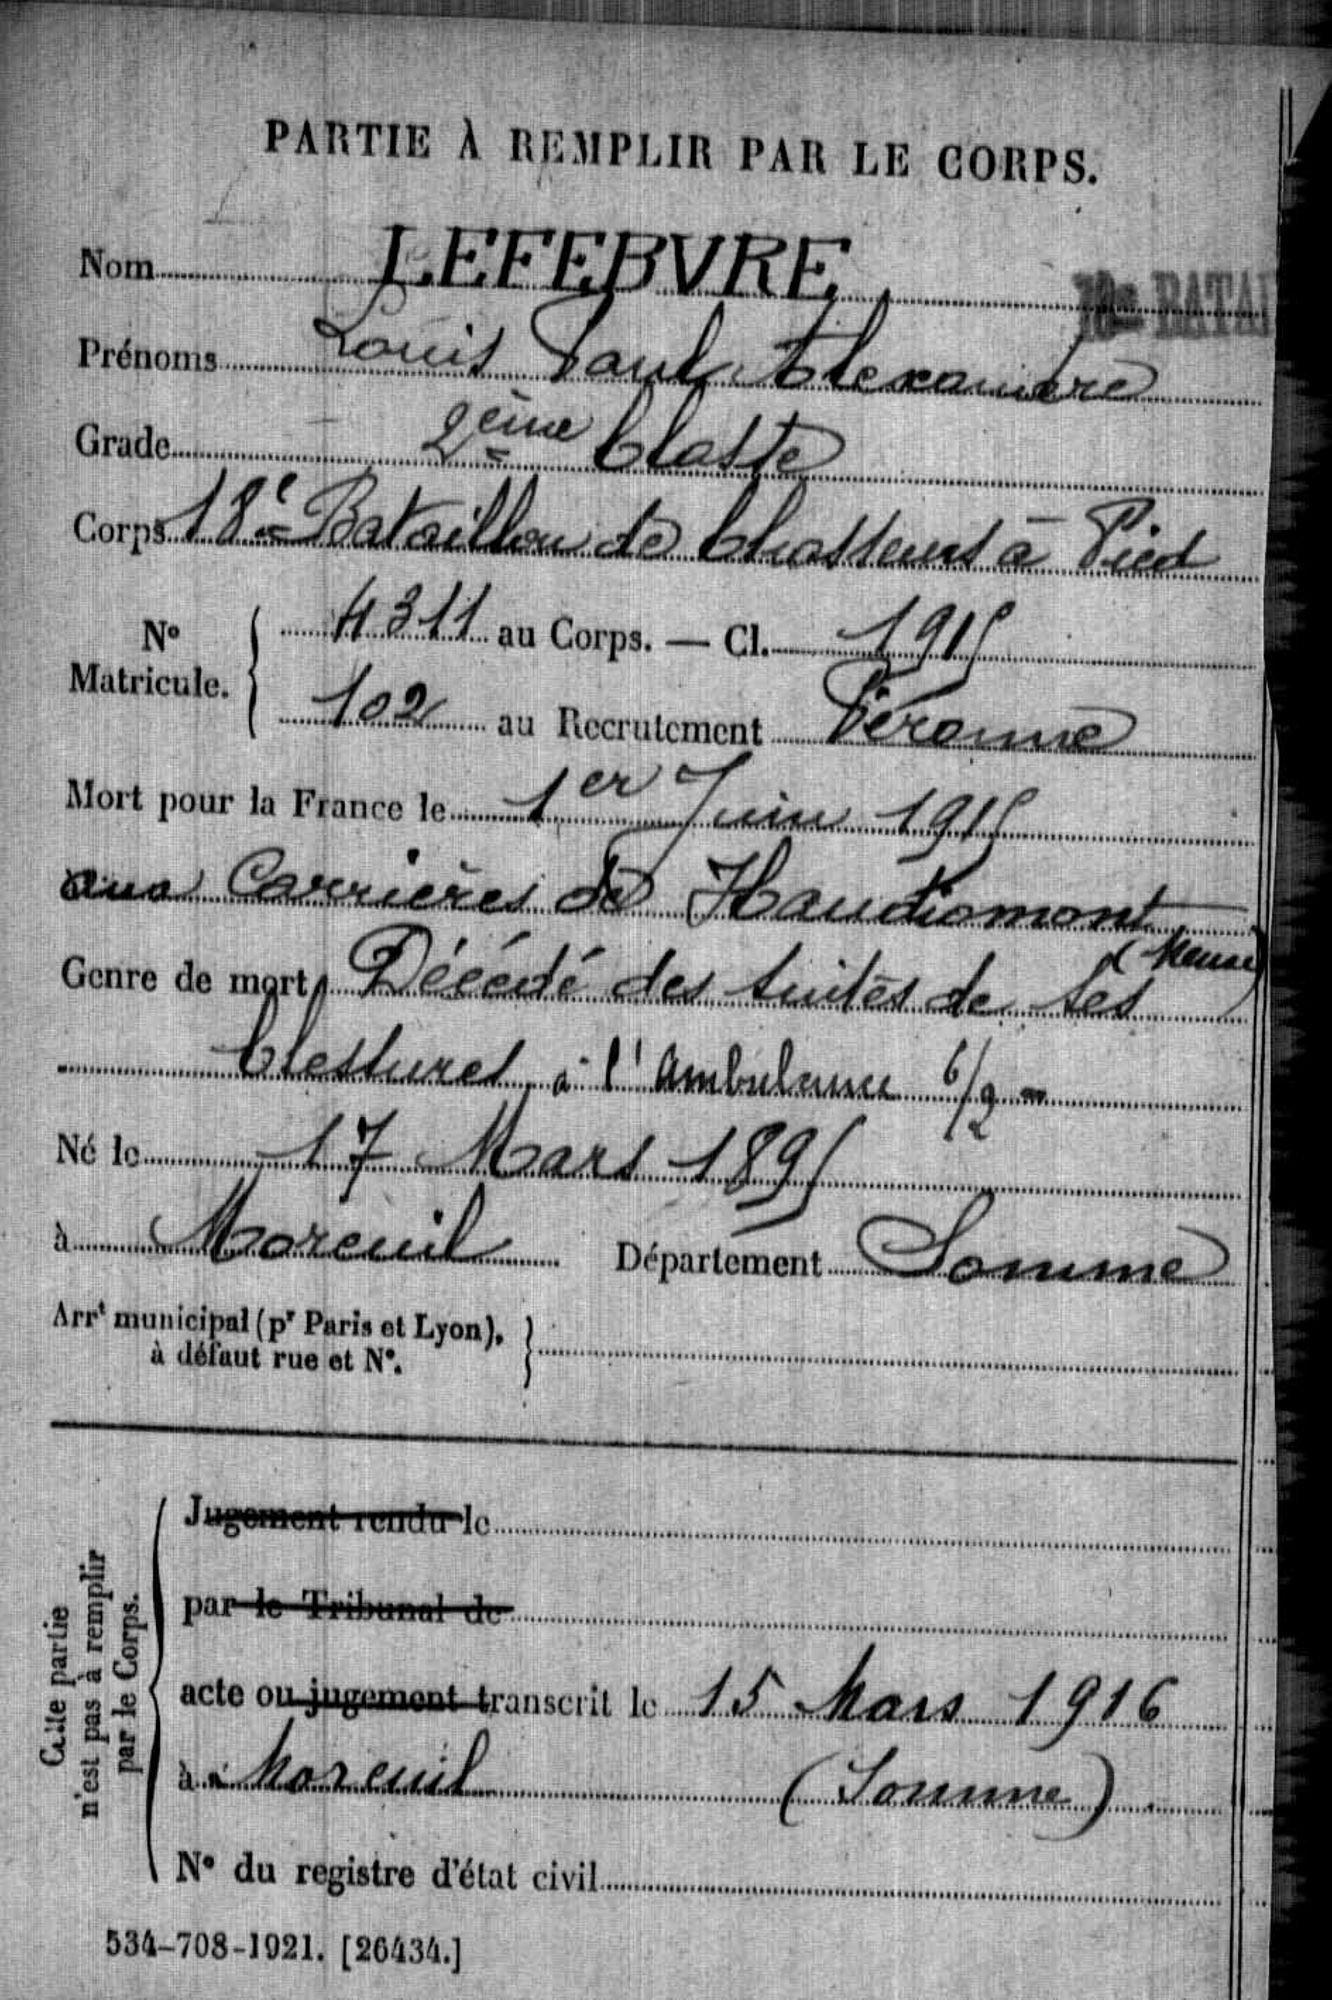 PARTIE À REMPLIR PAR LE CORPS.
Nom LEFEBVRE
18e BATAI
Prénoms Louis Paul Alexandre
Grade 2ème Classe
Corps 18e Bataillon de Chasseurs à Pied
No Matricule. { 4311 au Corps. — Cl. 1915
102 au Recrutement Péronne
Mort pour la France le 1er Juin 1915
aux Carrières de Haudiomont
(Meuse)
Genre de mort Décédé des suites de ses
blessures à l'Ambulance 6/2
Né le 17 Mars 1895
à Moreuil Département Somme
Arrt municipal (pr Paris et Lyon),
à défaut rue et N°. }
Cette partie
n'est pas à remplir
par le Corps.
Jugement rendu le
par le Tribunal de
acte ou jugement transcrit le 15 Mars 1916
à Moreuil (Somme)
N° du registre d'état civil
534-708-1921. [26434.]